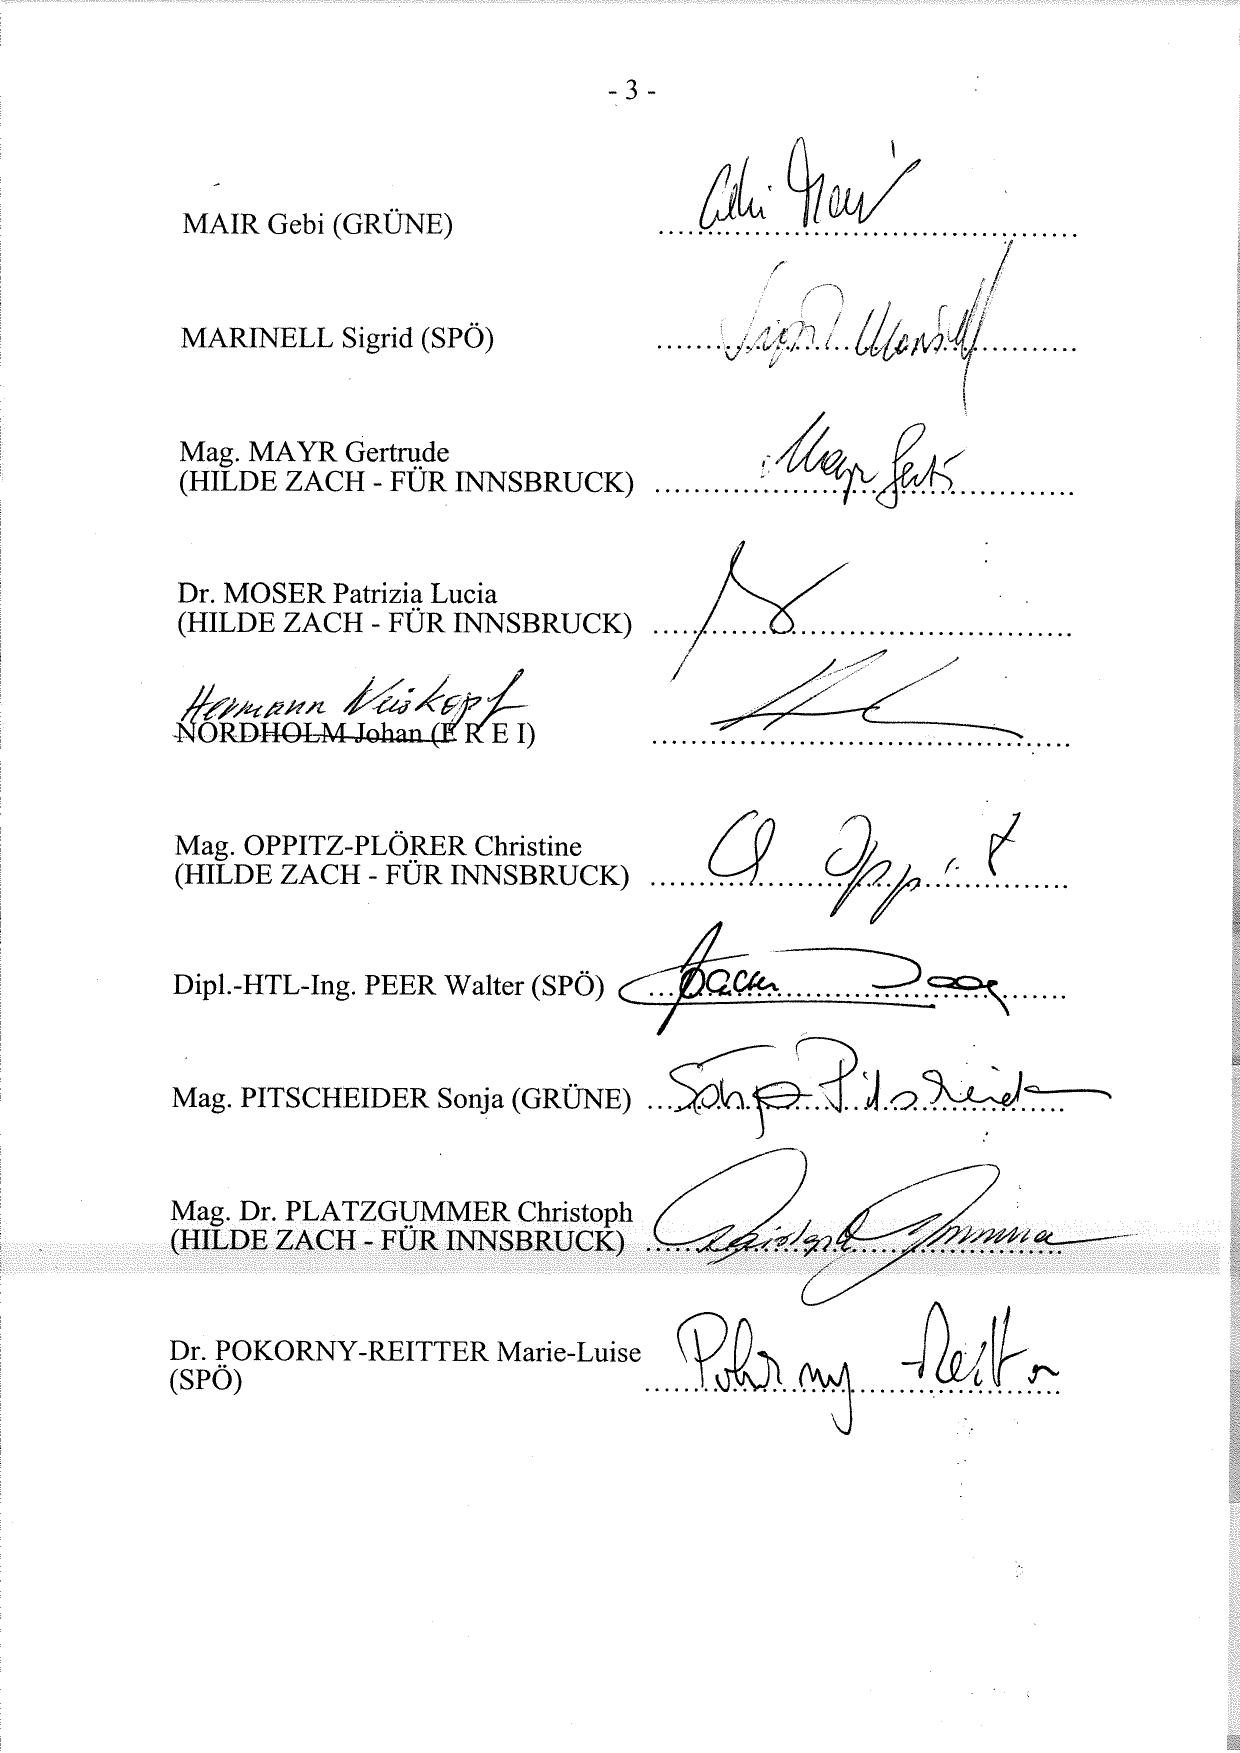 - 3 -
MAIR Gebi (GRÜNE) ........................................
Gebi Mair
MARINELL Sigrid (SPÖ) ........................................
Sigrid Marinell
Mag. MAYR Gertrude
(HILDE ZACH - FÜR INNSBRUCK) ........................................
Mayr Gert
Dr. MOSER Patrizia Lucia
(HILDE ZACH - FÜR INNSBRUCK) ........................................
Hermann Weiskopf
NORDHOLM Johan (F R E I) ........................................
Mag. OPPITZ-PLÖRER Christine
(HILDE ZACH - FÜR INNSBRUCK) ........................................
Ch Oppitz
Dipl.-HTL-Ing. PEER Walter (SPÖ) ........................................
Mag. PITSCHEIDER Sonja (GRÜNE) ........................................
Sonja Pitscheider
Mag. Dr. PLATZGUMMER Christoph
(HILDE ZACH - FÜR INNSBRUCK) ........................................
Dr. POKORNY-REITTER Marie-Luise
(SPÖ) ........................................
Pokorny Reitter